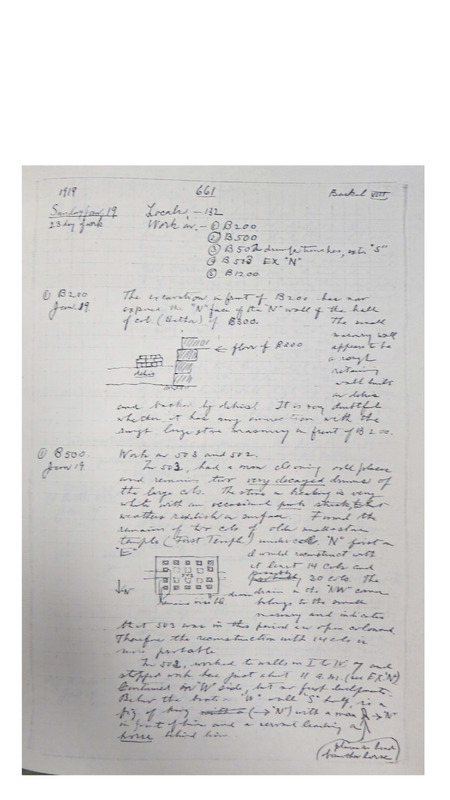 1919 661 Barkal VIII
Sunday Jan. 19 Locals, - 132
23 day of work Work on. - ① B200
② B500
③ B502 dump trenches, ext. "S"
④ B503 EX "N"
⑤ B1200
① B200 The excavation in front of B200 has now
Jan. 19. expose the "N" face of the "N" wall of the hall
of col. of B300. The small
masonry wall
← floor of B200 appears to be
a rough
retaining
debris wall built
on debris
and backed by debris. It is very doubtful
whether it has any connection with the
rough large stone masonry in front of B200.
② B500. Work on 503 and 502.
Jan 19 In 503, had a man cleaning
and removing two very decayed drums of
the large cols. The stone is very
white with an occasional
weathers reddish on surface. Found the
remains of two cols of older
temple (First Temple) under "N" first
"E" would reconstruct with
at least 14 cols and
possibly 20 cols. The
drain in the "NW" corner
Remains visible belongs to the small
masonry and indicates
that 503 was in this period an open
Therefore the reconstruction with 14 cols is
more probable
In 502, worked to walls in I to IV and
stopped work here just about 11 a.m. (see EX "N")
Continued on "W" side, but
Below the "W" wall "S" half, is a
fig. of king (→ "N") with a man → "N"
in front of him and a servant leading a
horse behind him.